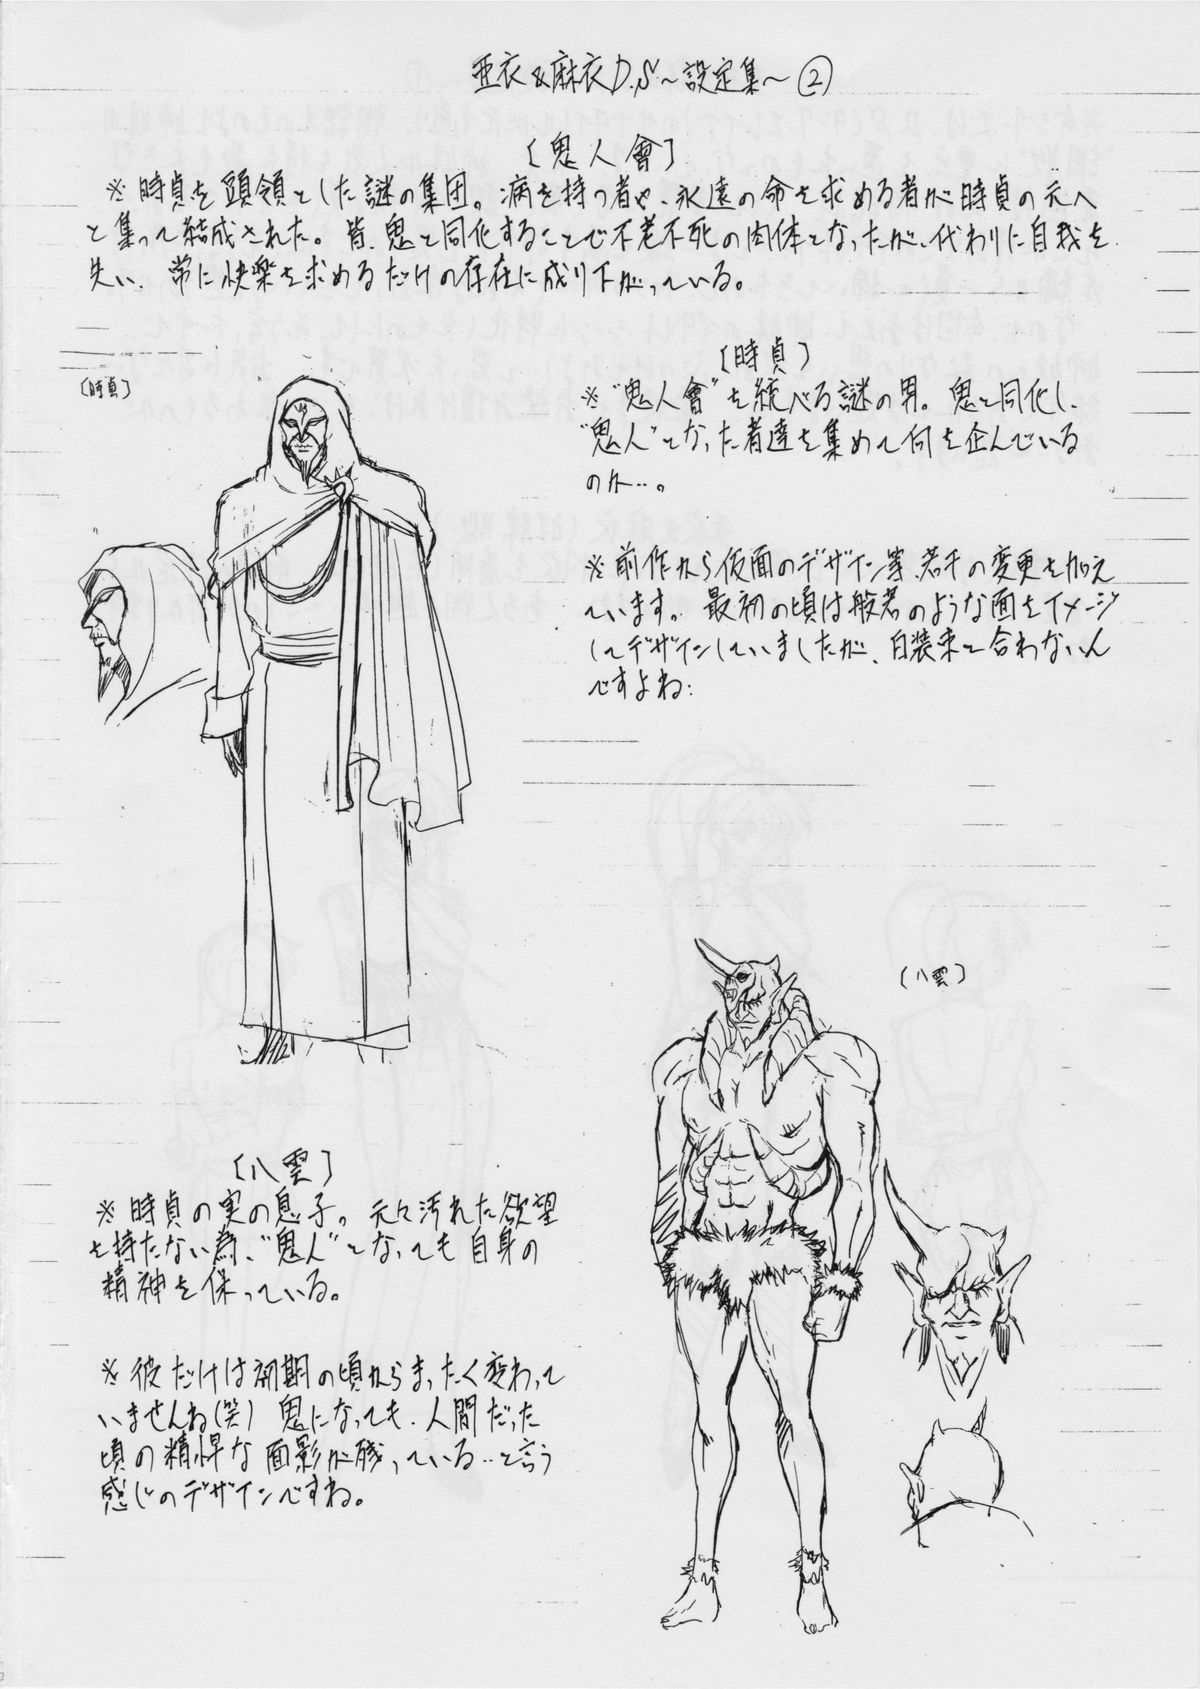 亜衣&麻衣D.S〜設定集〜②
〔鬼人會〕
※時貞を頭領とした謎の集団。病を持つ者や、永遠の命を求める者が時貞の元へ
と集って結成された。皆、鬼と同化することで不老不死の肉体となったが、代わりに自我を
失い、常に快楽を求めるだけの存在に成り下がっている。
〔時貞〕
〔時貞〕
※“鬼人會”を統べる謎の男。鬼と同化し、
“鬼人”となった者達を集めて何を企んでいる
のか…。
※前作から仮面のデザイン等、若干の変更を加え
ています。最初の頃は般若のような面をイメージ
してデザインしていましたが、白装束と合わないん
ですよね;
〔八雲〕
〔八雲〕
※時貞の実の息子。元々汚れた欲望
を持たない為、“鬼人”となっても自身の
精神を保っている。
※彼だけは初期の頃からまったく変わって
いませんね(笑) 鬼になっても、人間だった
頃の精悍な面影が残っている‥と言う
感じのデザインですね。